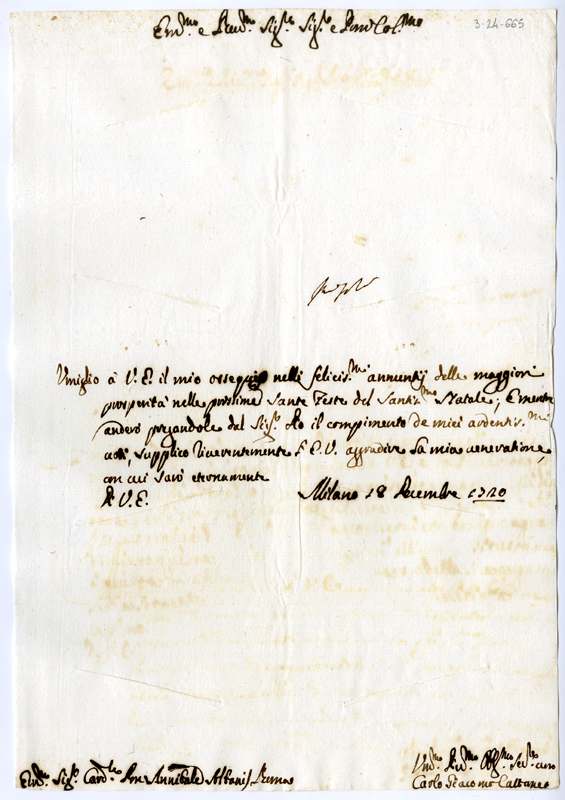 3-24-665
Em.mo e Rev.mo Sig.re Sig.re e Pron Col.mo
Umiglio à V. E. il mio ossequio nelli felicis.mi annuntij delle maggiori
prosperità nelle prossime Sante Feste del Santis.mo Natale; E mentre
anderò pregandole dal Sig.re Dio il compimento de miei ardentis.mi
voti, supplico riverentemente l'E.V. aggradire la mia veneratione,
con cui sarò eternamente
D V. E. Milano 18 Decembre 1720
Em.mo Sig.r Card.le Don Annibale Albani Roma
Um.mo Di.mo Obl.mo Ser.re vero
Carlo Giacomo Cattaneo